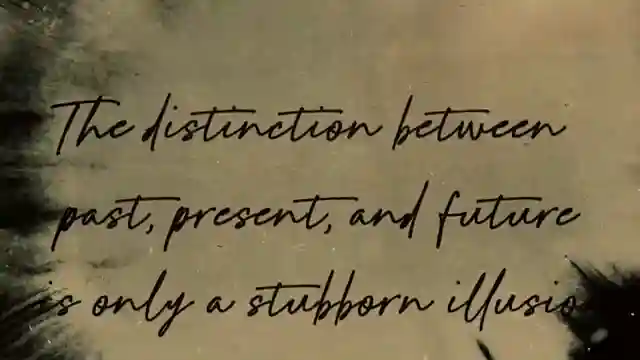 The distinction between
past, present, and future
is only a stubborn illusio